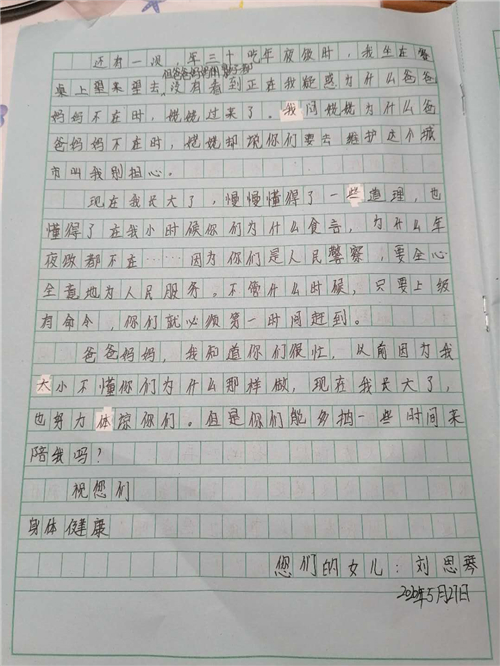 还有一次,年三十吃年夜饭时,我坐在餐
但爸爸妈妈的影子都
桌上望来望去,没有看到正在我疑惑为什么爸爸
妈妈不在时,姥姥过来了。我问姥姥为什么爸
爸妈妈不在时,姥姥却项你们要去维护这个城
市叫我别担心。
现在我长大了,慢慢懂得了一些道理,也
懂得了在我小时候你们为什么食言,为什么年
夜饭都不在……因为你们是人民警察,要全心
全意地为人民服务。不管什么时候,只要上级
有命令,你们就必须第一时间赶到。
爸爸妈妈,我知道你们很忙,以前因为我
太小不懂你们为什么那样做,现在我长大了,
也努力体谅你们。但是你们能多抽一些时间来
陪我吗?
祝您们
身体健康
您们的女儿:刘思琴
2020年5月27日